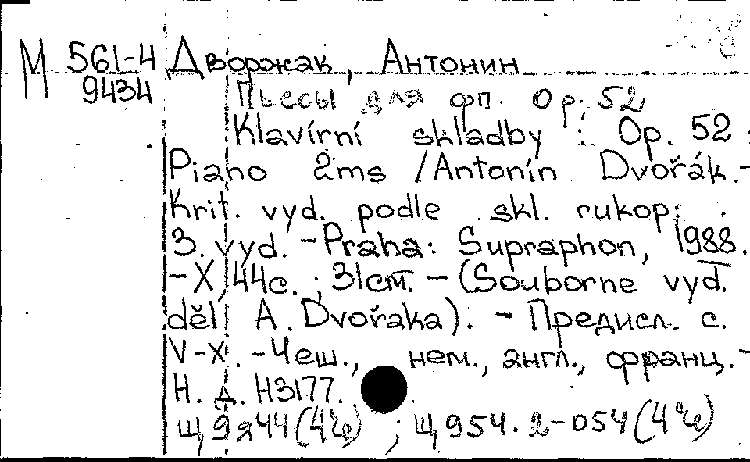 М 561-4 Дворжак, Антонин
9434 Пьесы для фп. Op. 52
Klavírní skladby : Op. 52 :
Piano 2ms / Antonín Dvořák. -
Krit. vyd. podle skl. rukop.
3. vyd. - Praha: Supraphon, 1988.
- X, 44с. ; 31см. - (Souborne vyd.
děl A. Dvořaka). - Предисл. с.
V-X. - Чеш., нем., англ., франц. -
Н. д. H3177.
Щ954.2-054(4Че)